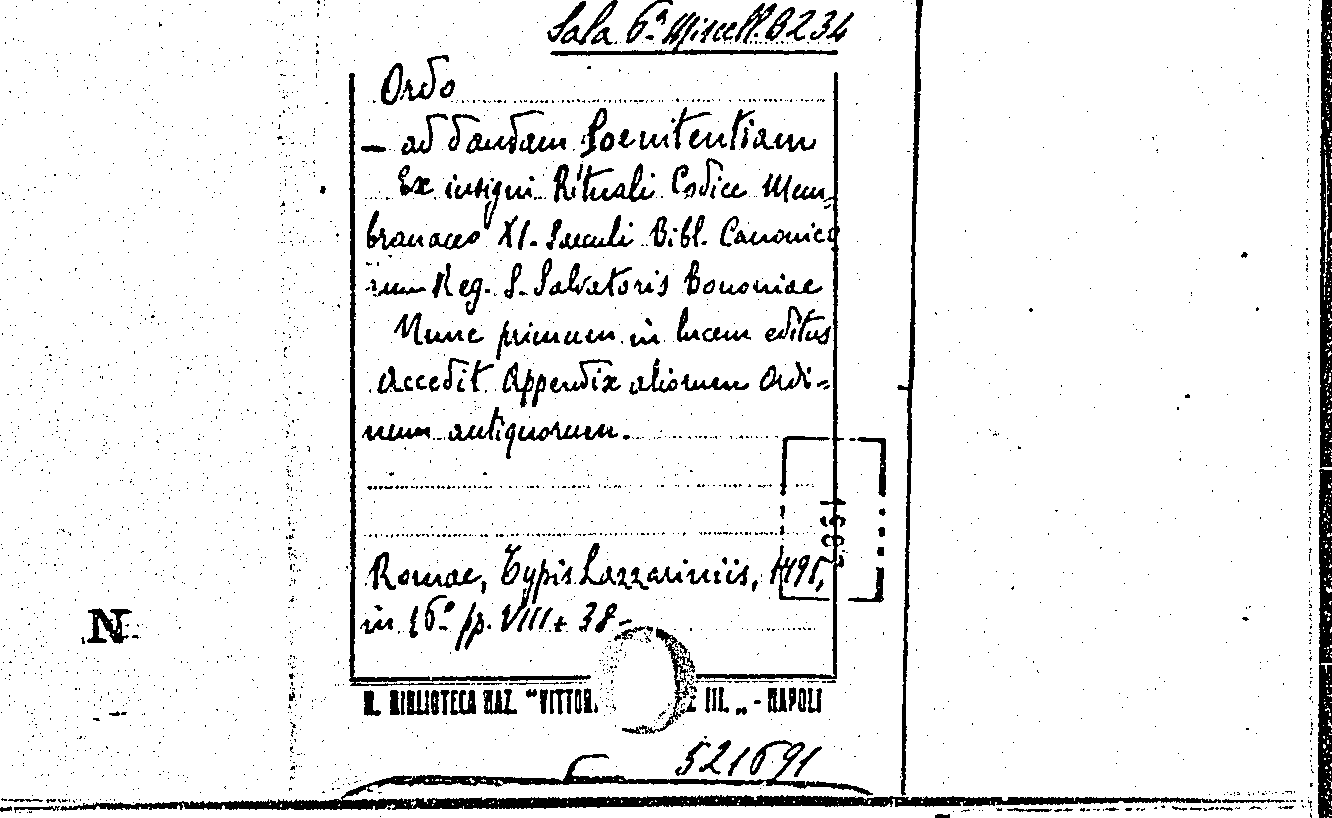 Sala 6ª Miscell. B234
Ordo
— ad dandam Poenitentiam
Ex insigni Rituali Codice Mem-
branaceo XI. Saeculi Bibl. Canonico
rum Reg. S. Salvatoris Bononiae
Nunc primum in lucem editus
Accedit Appendix aliorum Ordi=
num antiquorum.
Romae, Typis Lazzariniis,
in 16º pp. VIII + 38-
R. BIBLIOTECA NAZ. "VITTOR. E III. „ - NAPOLI
521691
N